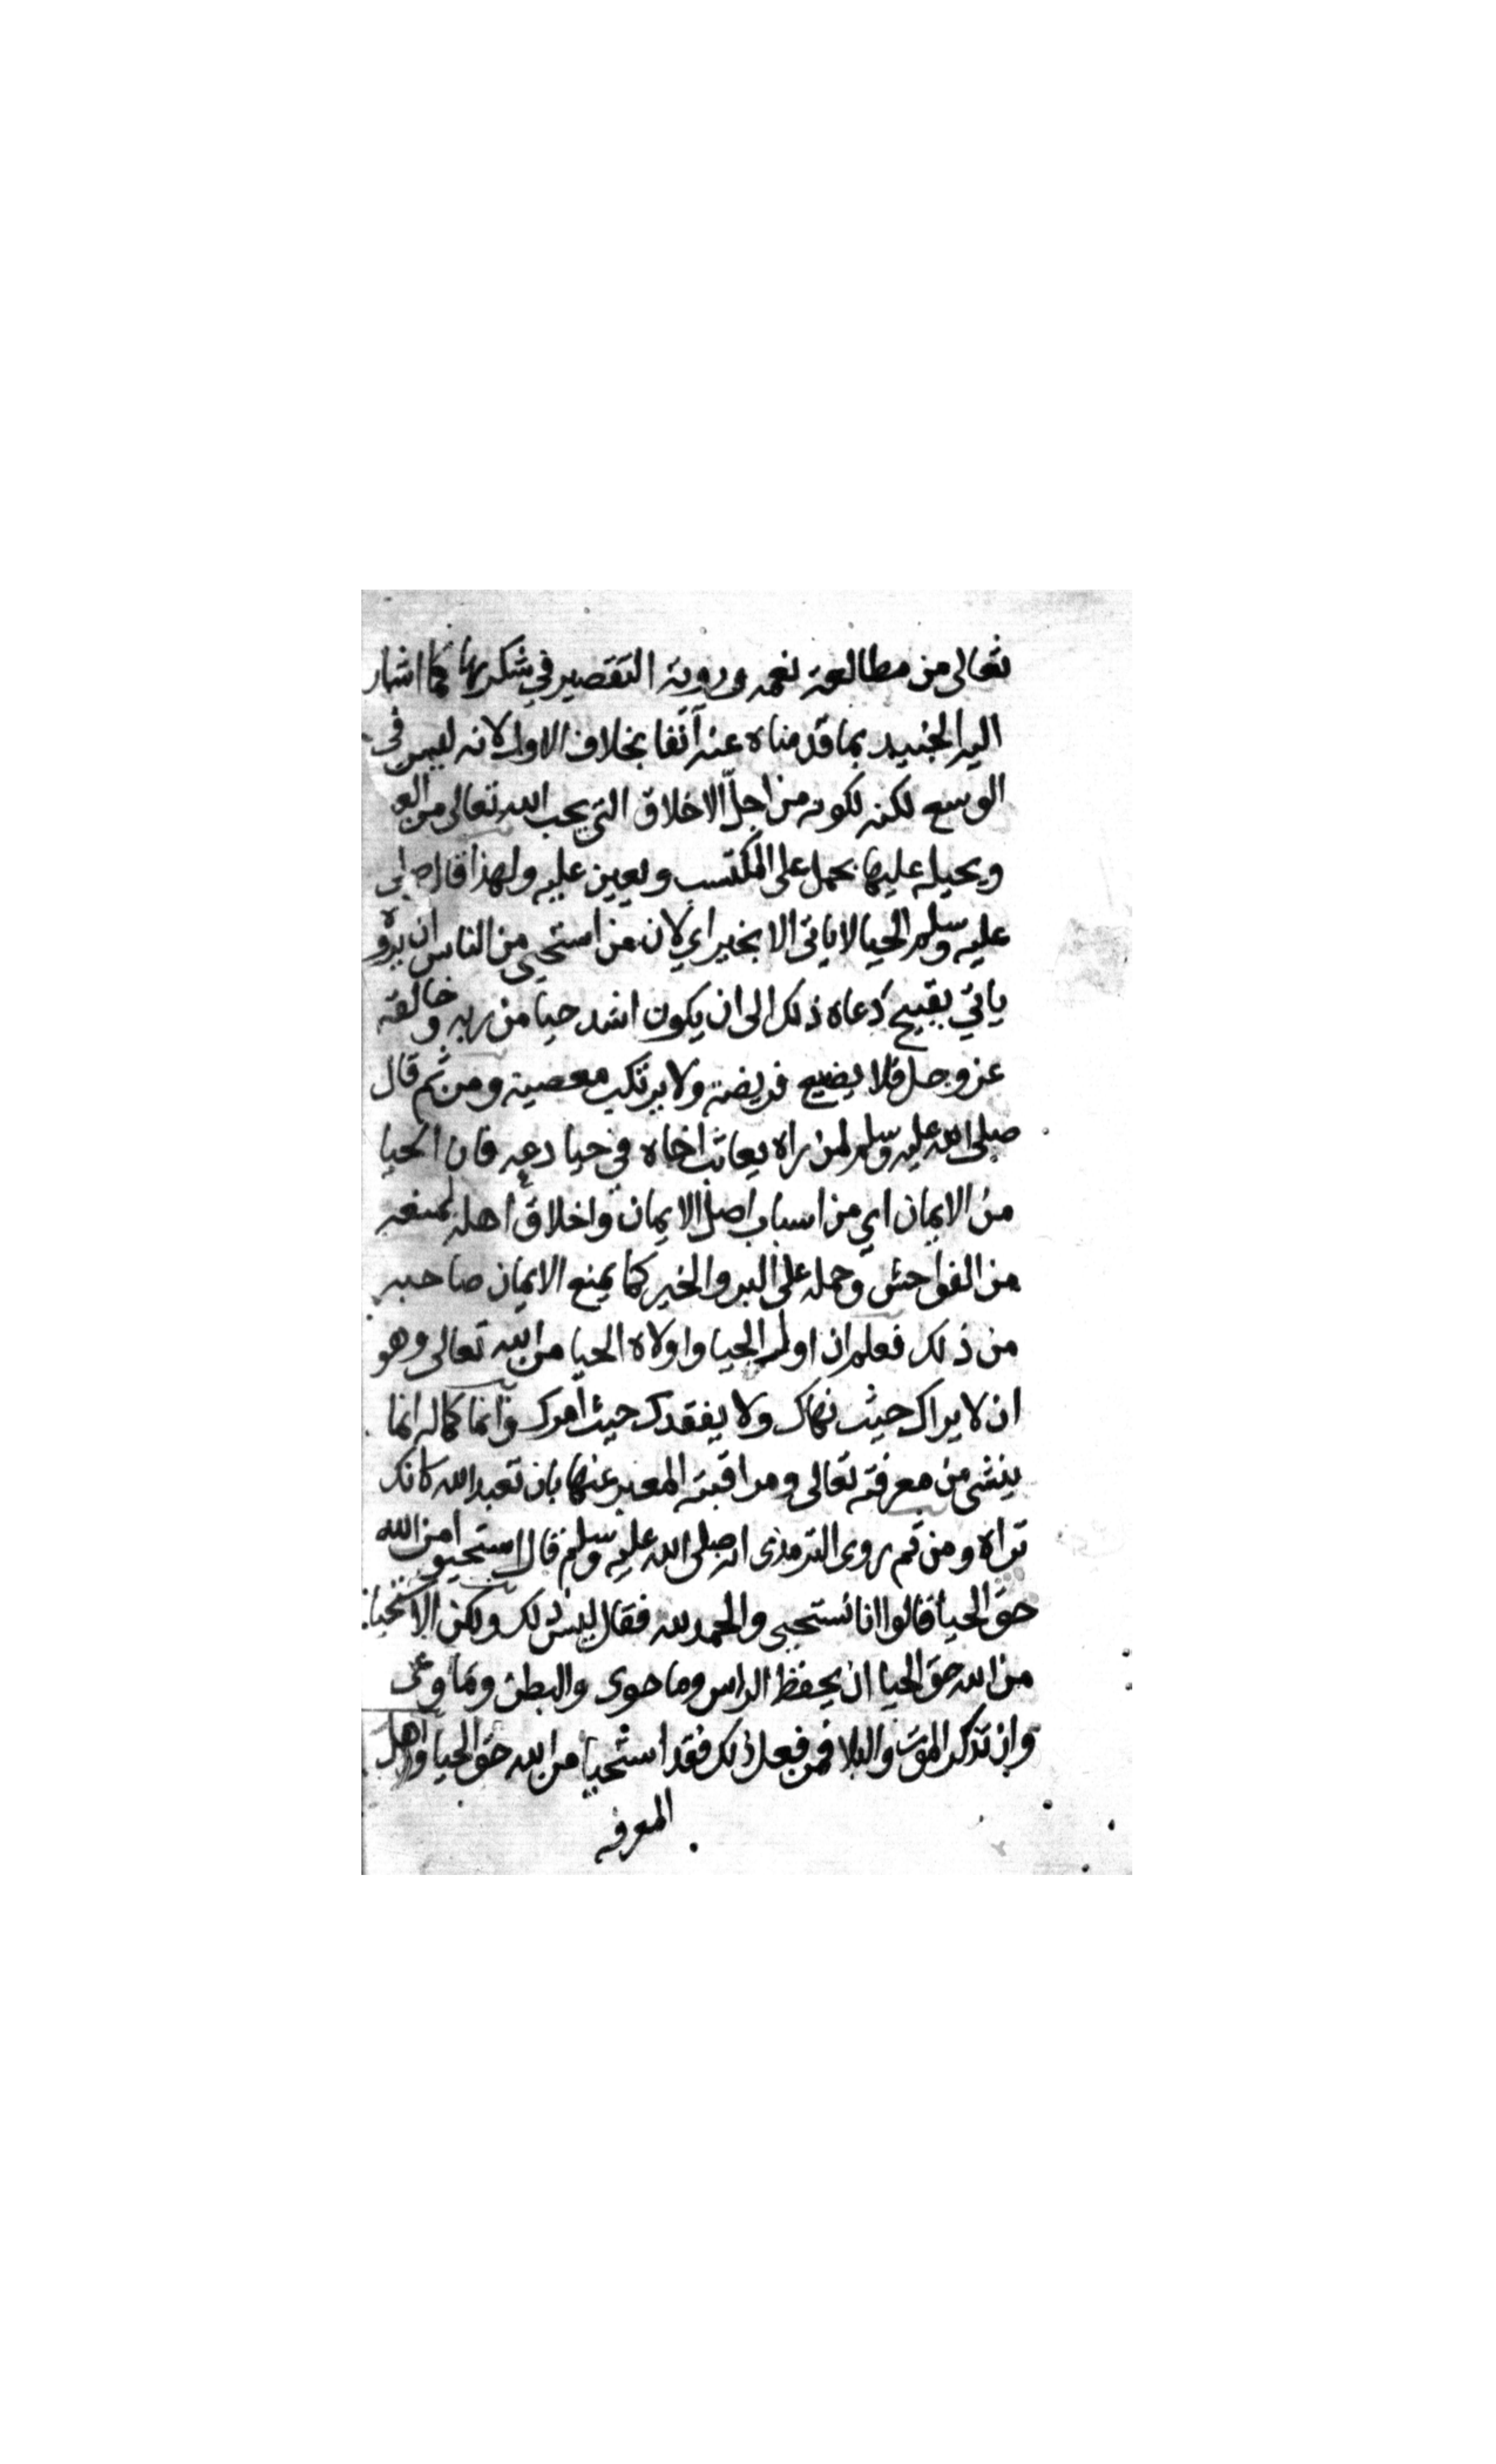 تعالى من مطالعة نعمه ورؤية التقصير في شكرها كما اشار
اليه الجنيد بما قدمناه عنه آنفا بخلاف الاول لانه ليس في
الوسع لكنه لكونه من اجلّ الاخلاق التي يحب الله تعالى من
ويحيله عليها يحمل على المكتسب ويعين عليه ولهذا قال صلى
عليه وسلم الحيا لا ياتى الا بخير اي لان من استحيى من الناس ان يروه
ياتي بقبيح دعاه ذلك الى ان يكون اشد حيا من ربه وخالقه
عز وجل فلا يضيع فريضة ولا يرتكب معصية ومن ثم قال
صلى الله عليه وسلم لمن راه يعاتب اخاه في حيا دعه فان الحيا
من الايمان اي من اسباب اصل الايمان واخلاق اهله لمنعه
من الفواحش وحمله على البر والخير كما يمنع الايمان صاحبه
من ذلك فعلم ان اول الحيا واولاه الحيا من الله تعالى وهو
ان لا يراك حيث نهاك ولا يفقدك حيث امرك وانما كماله انما
ينشى من معرفته تعالى ومراقبته المعبر عنها بان تعبد الله كانك
تراه ومن ثم روى الترمذى انه صلى الله عليه وسلم قال استحيوا من الله
حق الحيا قالوا انا نستحيى والحمد لله فقال ليس ذلك ولكن الاستحيا
من الله حق الحيا ان يحفظ الراس وما حوى والبطن وما وعى
وان تذكر الموت والبلا فمن فعل ذلك فقد استحيا من الله حق الحيا واهل
المعرفه